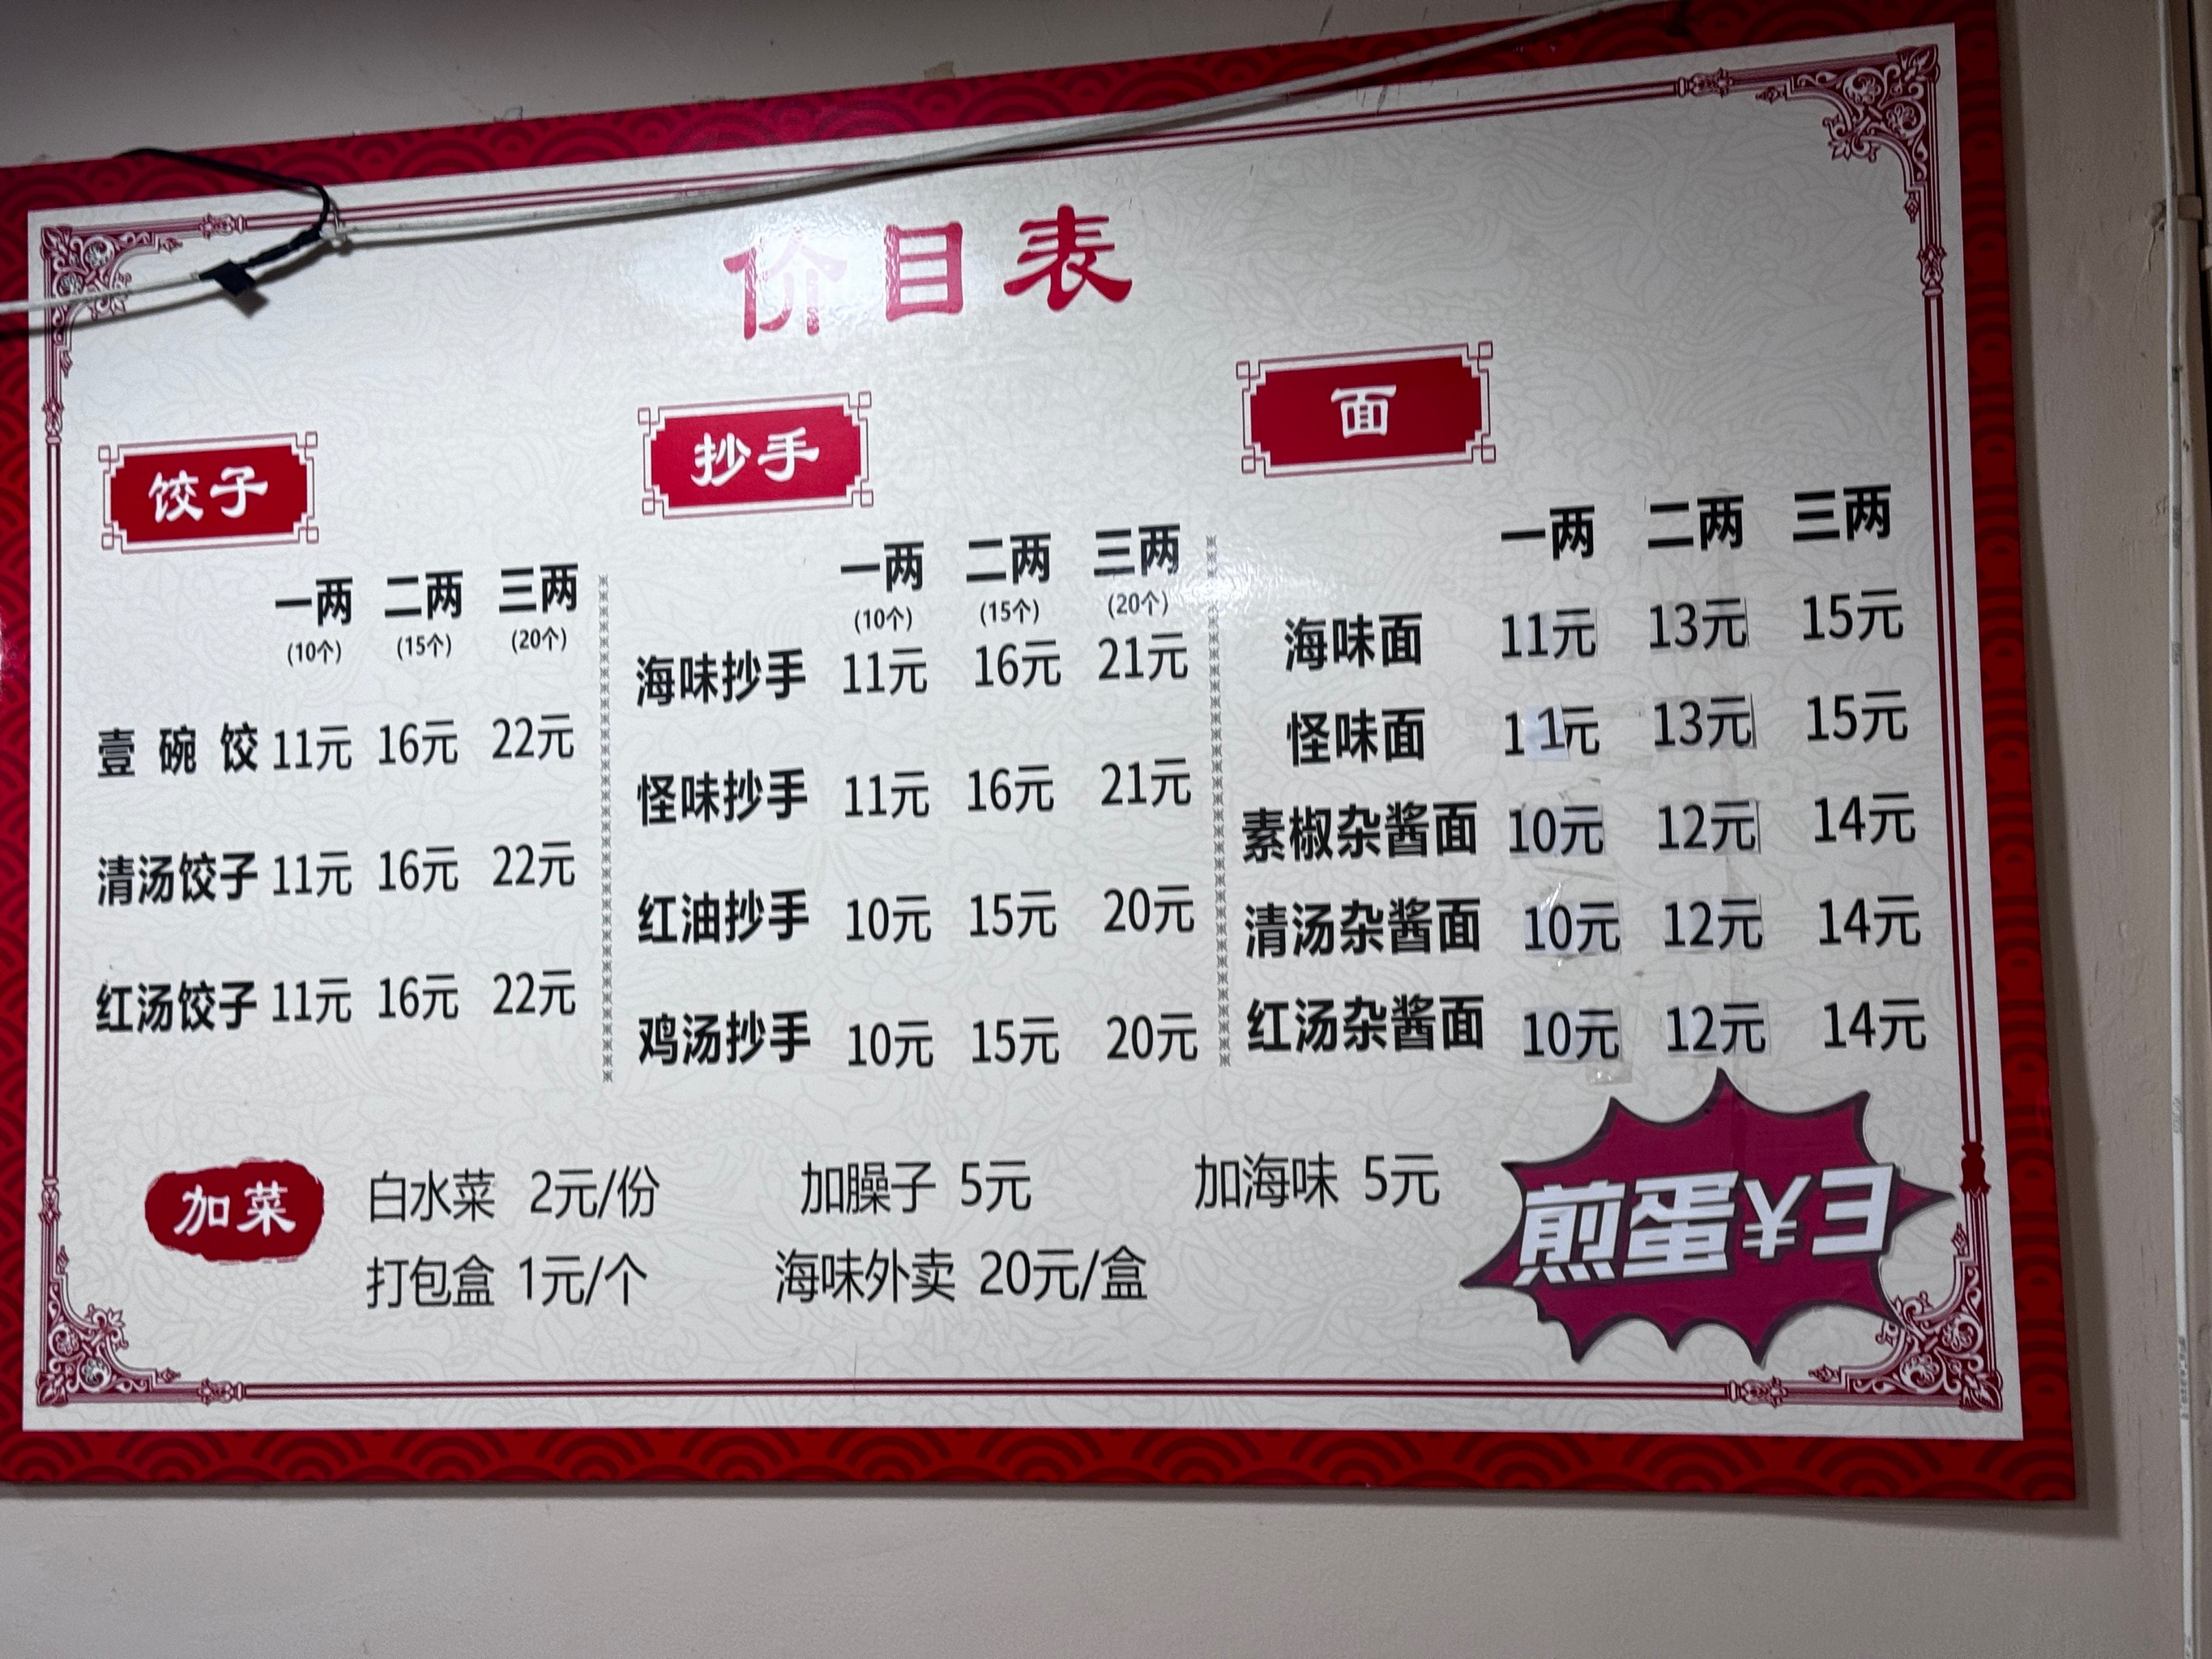 价目表
饺子
一两 二两 三两
(10个) (15个) (20个)
壹碗饺 11元 16元 22元
清汤饺子 11元 16元 22元
红汤饺子 11元 16元 22元
抄手
一两 二两 三两
(10个) (15个) (20个)
海味抄手 11元 16元 21元
怪味抄手 11元 16元 21元
红油抄手 10元 15元 20元
鸡汤抄手 10元 15元 20元
面
一两 二两 三两
海味面 11元 13元 15元
怪味面 11元 13元 15元
素椒杂酱面 10元 12元 14元
清汤杂酱面 10元 12元 14元
红汤杂酱面 10元 12元 14元
加菜
白水菜 2元/份 加臊子 5元 加海味 5元
打包盒 1元/个 海味外卖 20元/盒
煎蛋¥3